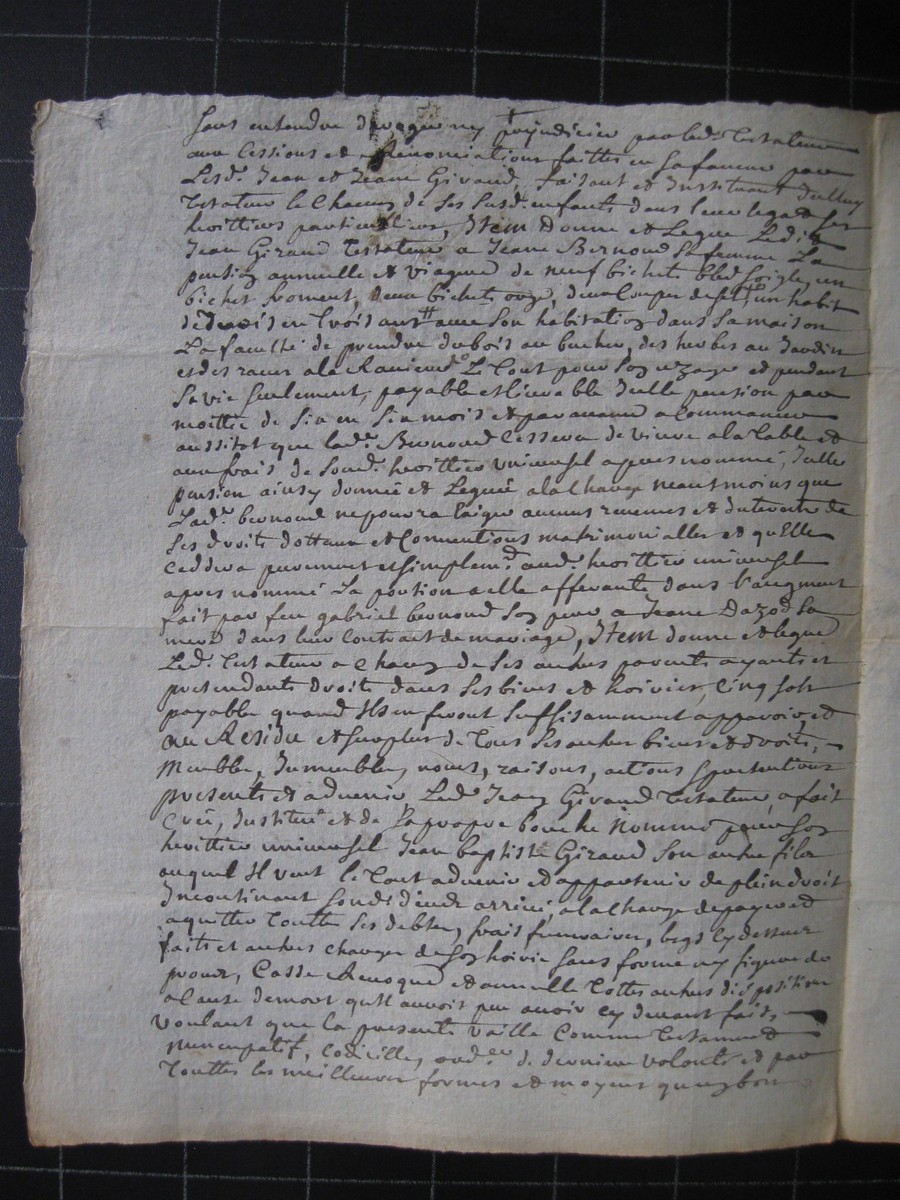 sans entendre deroger ny prejudicier par led. testateur
aux cessions et renonciations faittes en sa faveur par
lesd. Jean et Jeane Giraud, faisant et instituant
testateur le chacung de ses susd. enfants dans leur legat ses
heoittiers particuliers, Item donne et legue ledit
Jean Giraud testateur a Jeane Bernoud sa femme la
pention annuelle et viagere de neuf bichets bled soigle, un
bichet froment, deux bichets orge, deux coupes de sel un habit
de trois en trois ans avec son habitation dans sa maison
la faculté de prendre du bois au bucher, des herbes au jardin
et des raves a la raviere le tout pour son uzage et pendant
sa vie seulement, payable et livrable icelle pension par
moittié de six en six mois et par avance a commancer
aussitot que lad. Bernoud cessera de vivre a la table et
aux frais de sond. heoittier universel apres nommé, icelle
pension ainsy donnée et leguée a la charge neantmoins que
lad. bernoud ne poura exiger aucuns revenus et interets de
ses droits dottaux et conventions matrimonialles et qu'elle
ceddera purement et simplemt. aud. heoittier universel
apres nommé la portion a elle afferante dans l'augment
fait par feu gabriel bernoud son pere a Jeane Dazod sa
mere dans leur contract de mariage, Item donne et legue
led. testateur a chacung de ses autres parents ayants et
pretendants droits dans ses biens et hoirie, cinq sols
payable quand ils en feront suffisamment apparoir, et
au residu et surplus de tous ses autres biens et droits,
meubles, immeubles, noms, raisons, actions et pretentions
presents et advenir led. Jean Giraud testateur, a fait
créé, institué et de sa propre bouche nommé pour son
heoittier universel Jean baptiste Giraud son autre fils
auquel il veut le tout advenir et appartenir de plein droit
incontinant son deceds arrivé, a la charge de payer et
aquitter touttes ses debtes, frais funeraires, legs cy dessus
faits et autres charges de son hoirie sans forme ny figure de
proces, casse revoque et annulle touttes autres dispositions
a cause de mort qu'il auroit peu avoir cy devant fait,
voulant que la presente vaille comme testament
nuncupatif, codicille, ordce. de derniere volonté et par
touttes les meilleures formes et moyens qu'en bon